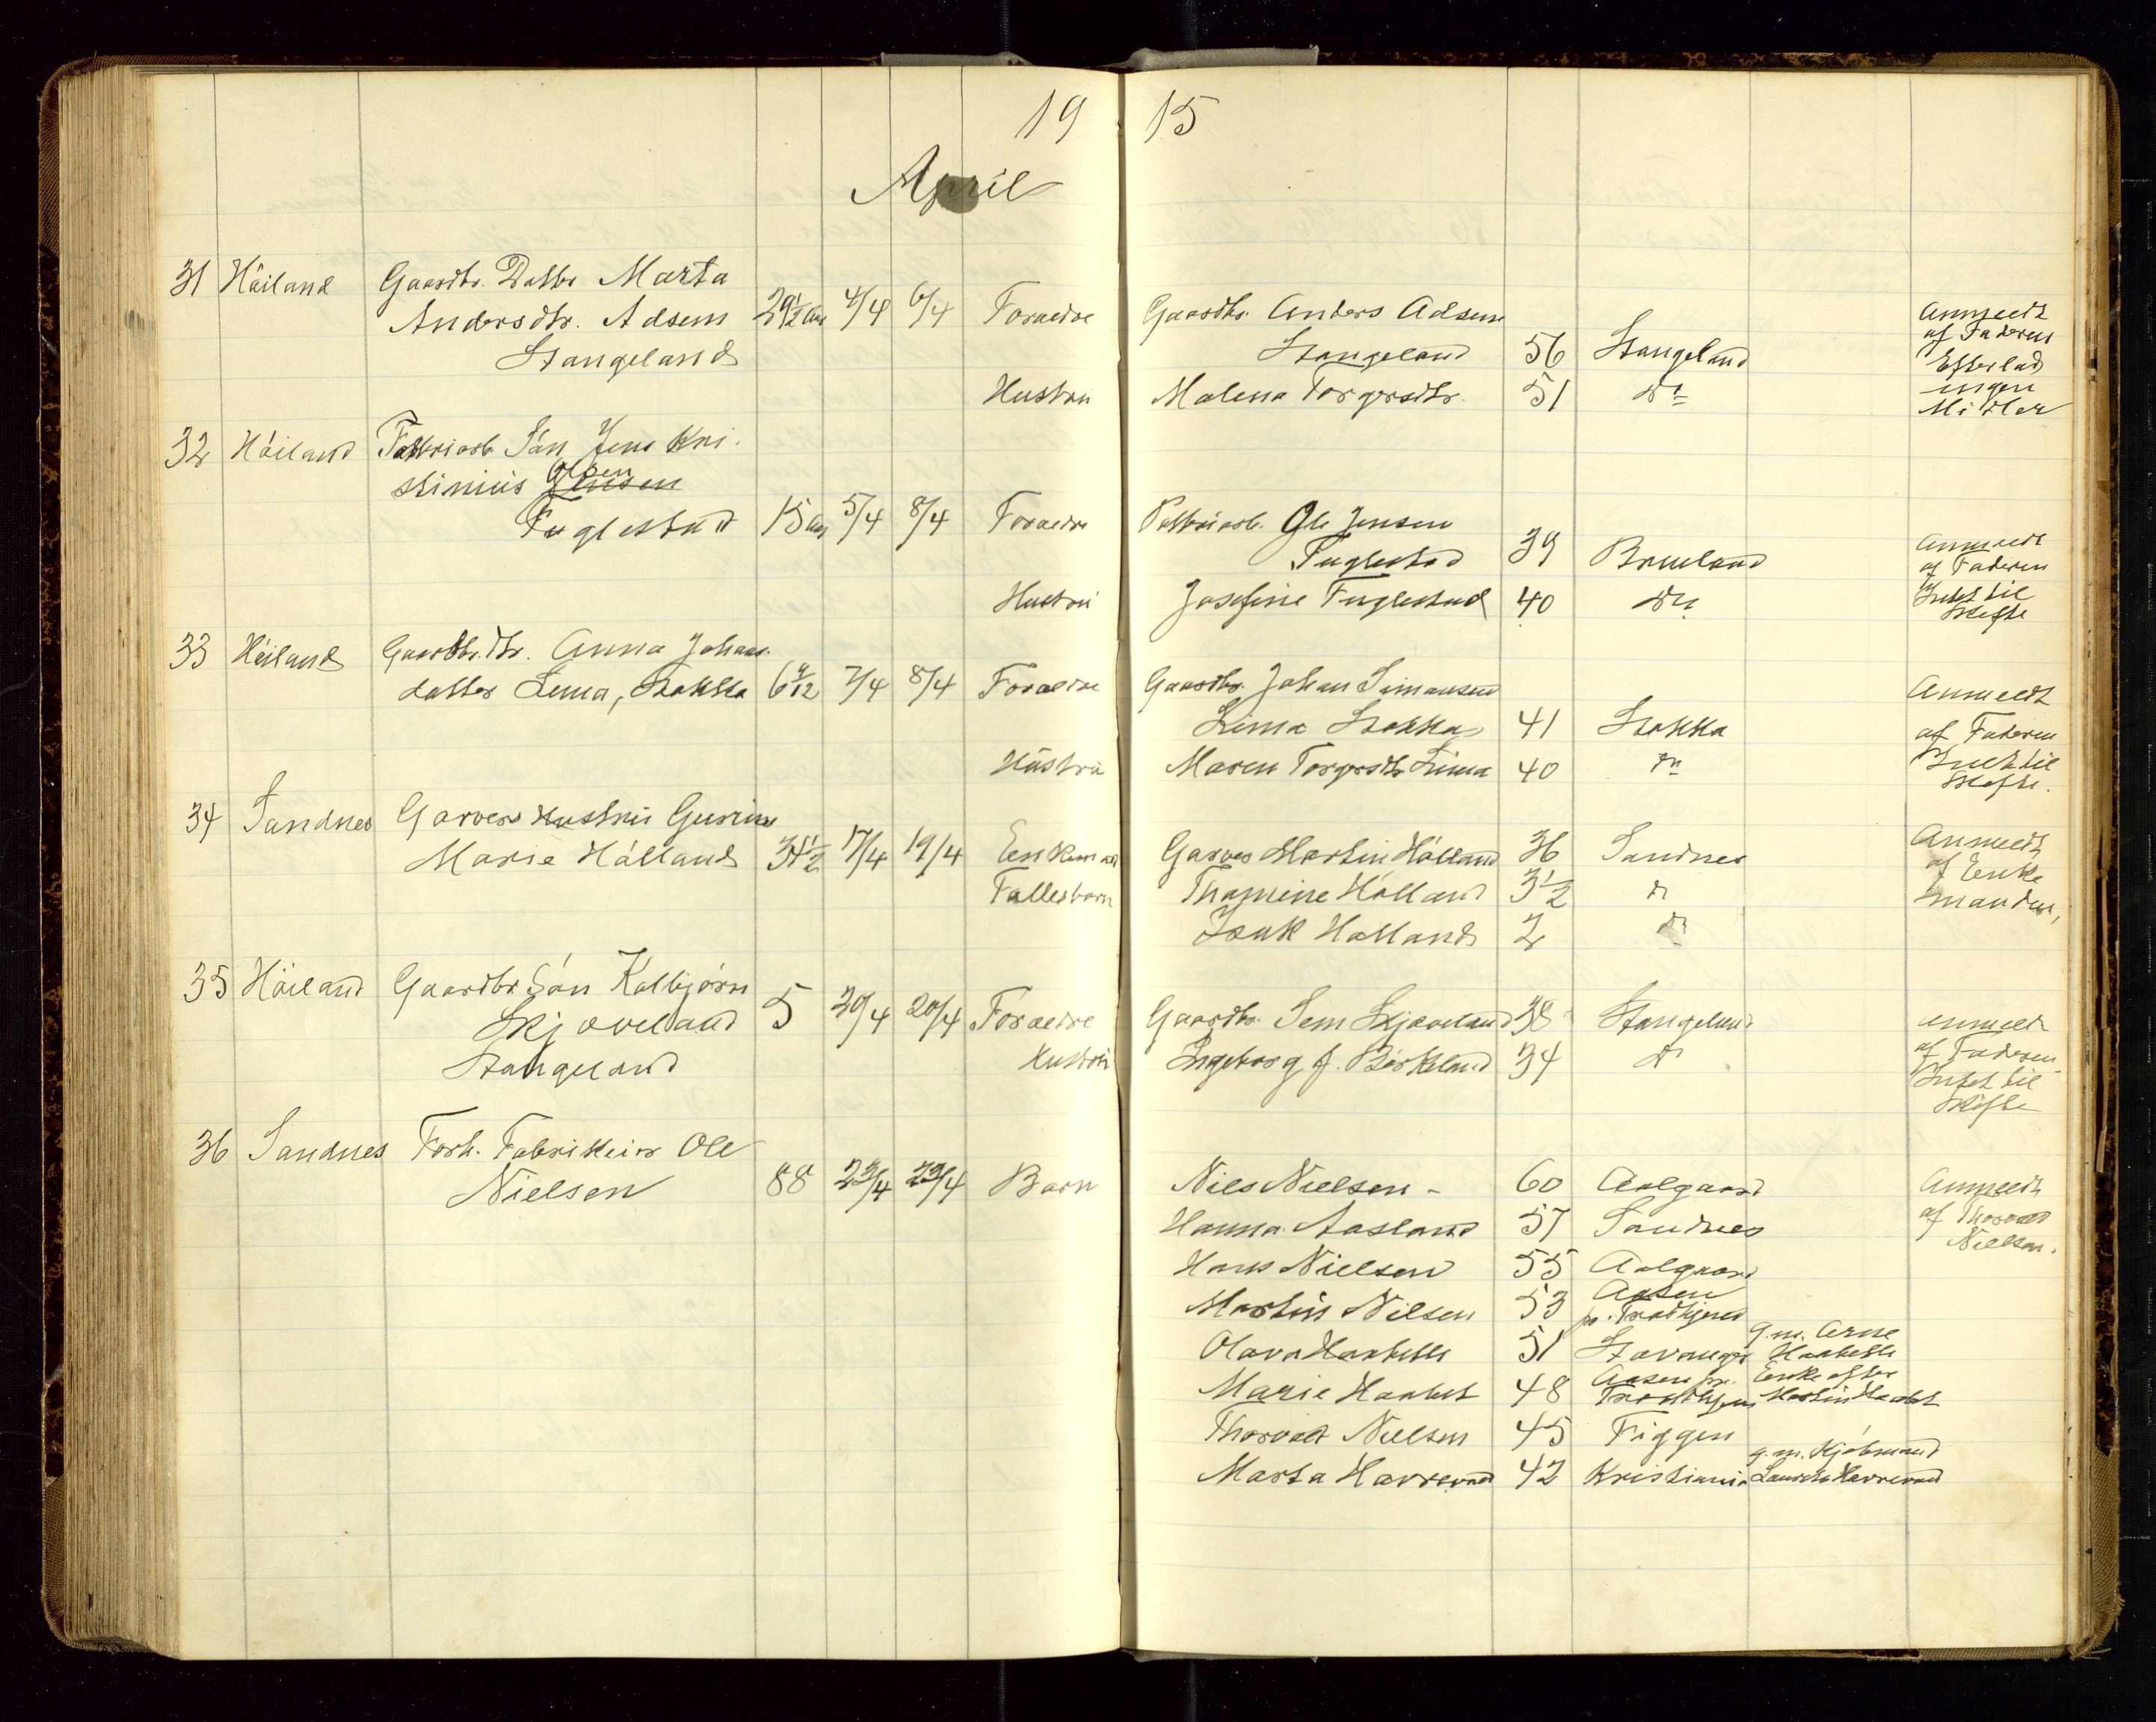 19 15
April
31 Höiland Gaardbr. Datter Marta
Andersdtr. Adsen 29 1/2 Aar 4/4 6/4 Foraeldre Gaardbr. Anders Adsen
Stangeland
Stangeland 56 Stangeland
Anmeldt
af Faderen
Efterlad
ingen
Midler
Hustru Malena Torgersdtr. 51 do
32 Höiland Fabriarb. Sön Jens Kri-
stinius Jensen Olsen
Fuglestad 15 Aar 5/4 8/4 Foraeldre Fabriarb. Ole Jensen
Fuglestad 39 Brueland
Anmeldt
af Faderen
Intet til
Skifte
Hustru Josefine Fuglestad 40 do
33 Höiland Gaardbr. Dtr. Anna Johans
datter Lima, Stokka 6 9/12 7/4 8/4 Foraeldre Gaardbr. Johan Simonsen
Lima Stokka 41 Stokka
Anmeldt
af Faderen
Intet til
Skifte.
Hustru Maren Torgersdtr Lima 40 do
34 Sandnes Garvers Hustru Gurine
Marie Hålland 34 1/2 17/4 19/4 Enkemand Garver Martin Hålland 36 Sandnes
Fallesbarn Thomine Hålland 3 1/2 do
Isak Halland 2 do
Anmeldt
af Enke
manden,
35 Höiland Gaardbr Sön Kolbjörn
Skjæveland 5 20/4 20/4 Foraeldre Gaardbr. Sem Skjæveland 38 Stangeland
Stangeland Hustru Ingeborg f. Birkeland 34 do
Anmeldt
af Faderen
Intet til
Skifte
36 Sandnes Forh. Fabrikeier Ole
Nielsen 88 23/4 23/4 Barn Nils Nielsen - 60 Aalgaard
Anmeldt
af Thorvald
Nielsen.
Hanna Aasland 57 Sandnes
Hans Nielsen 55 Aalgaard
Martin Nilsen 53 Aasen
pr. Trondhjem
Olava Haabeth 51 Stavanger g.m. Arne
Haabeth
Marie Haabet 48 Aasen pr.
Trondhjem Enke efter
Martin Haabet
Thorvald Nielsen 45 Figgen
Marta Havrevold 42 Kristiania g.m. Kjöbmand
Lauritz Havrevold